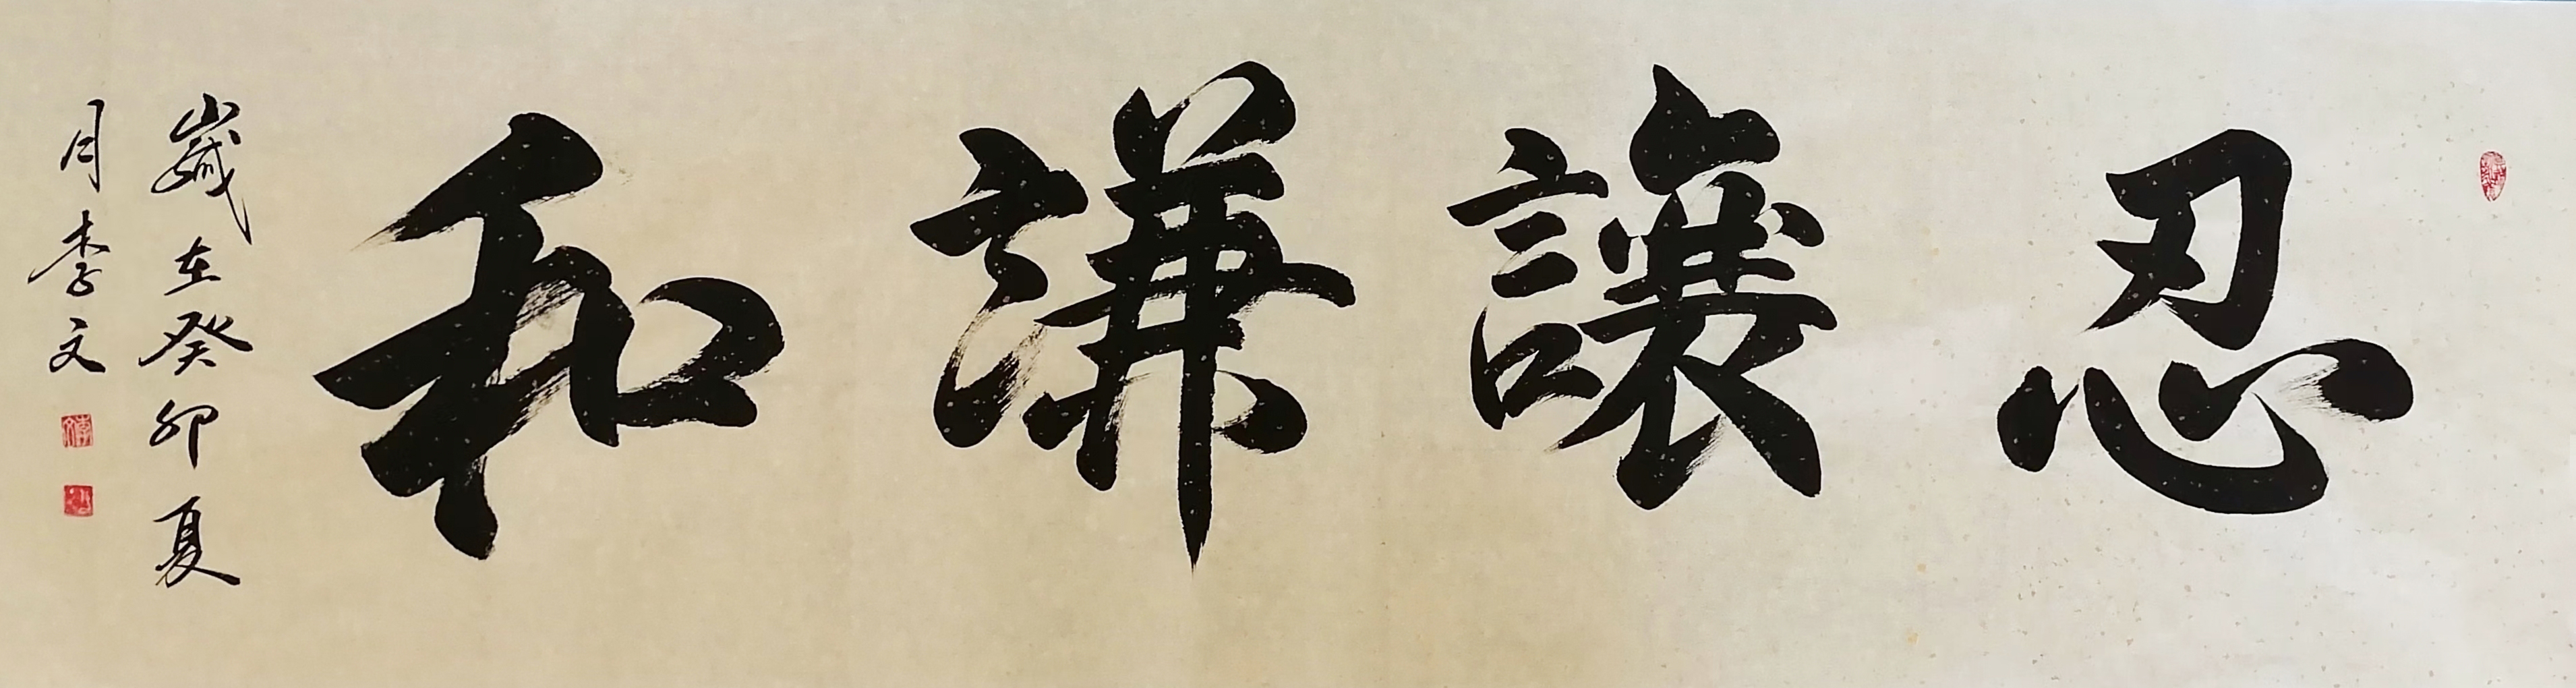 忍讓謙和
歲在癸卯夏
月李文